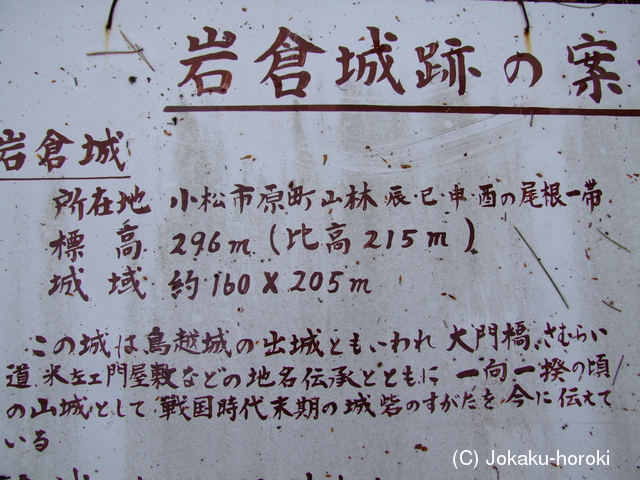 岩倉城跡の案
岩倉城
所在地 小松市原町山林 辰・巳・申・酉の尾根一帯
標高 296m (比高 215m)
城域 約160×205m
この城は鳥越城の出城ともいわれ 大門橋、さむらい
道、米左エ門屋敷などの地名伝承とともに 一向一揆の頃
の山城として 戦国時代末期の城砦のすがたを 今に伝えて
いる
(C) Jokaku-horoki